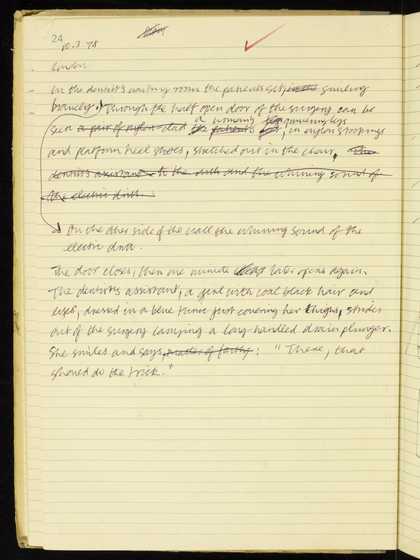 24
10.3.78
London
In the dentist's waiting room the patients sit smiling
bravely. Through the half open door of the surgery can be
seen a pair of nylon clad a woman's legs, in nylon stockings
and platform heel shoes, stretched out in the chair,
dentist's assistant to the and the whining sound of
the electric drill.
On the other side of the wall the whining sound of the
electric drill.
The door closes, then one minute later opens again.
The dentist's assistant, a girl with coal black hair and
eyes, dressed in a blue tunic just covering her thighs, strides
out of the surgery carrying a long-handled drain plunger.
She smiles and says, matter of factly: "There, that
should do the trick."